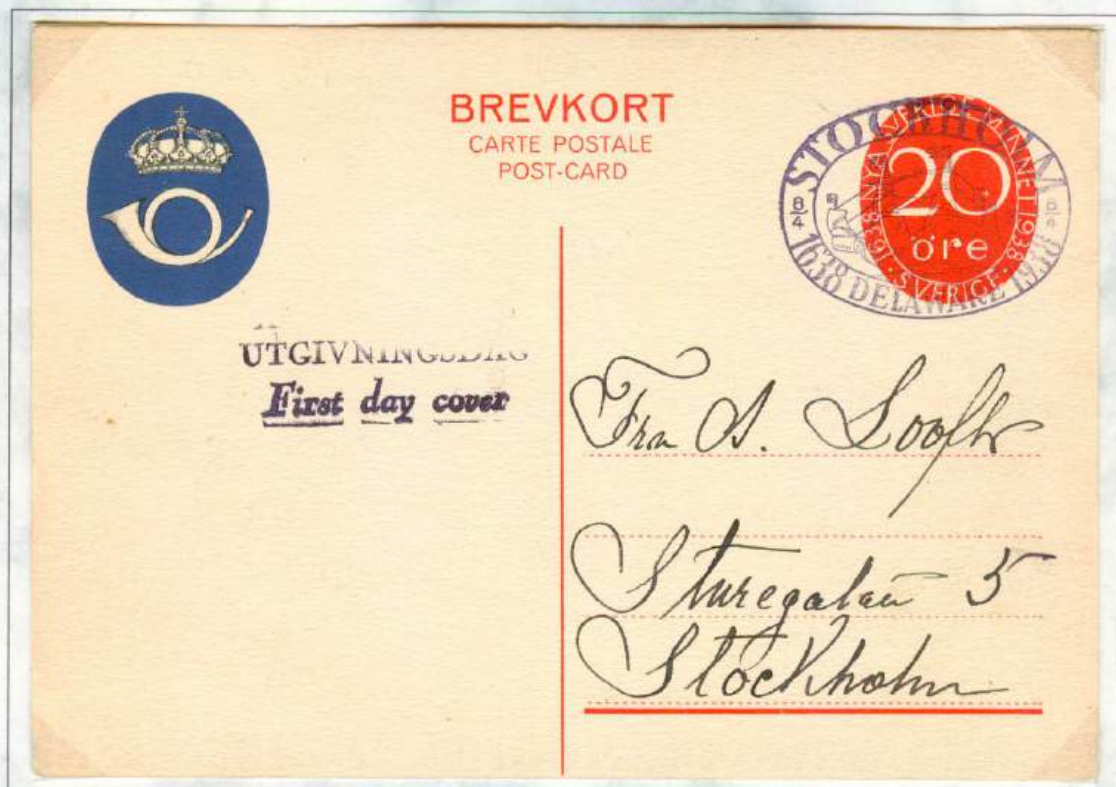 BREVKORT
CARTE POSTALE
POST-CARD
STOCKHOLM
8/4 8/4
1638 DELAWARE 1938
1638 · NYA SVERIGE-MINNET 1938
20
öre
· SVERIGE ·
UTGIVNINGSDAG
First day cover
Fru A.
Sturegatan 5
Stockholm